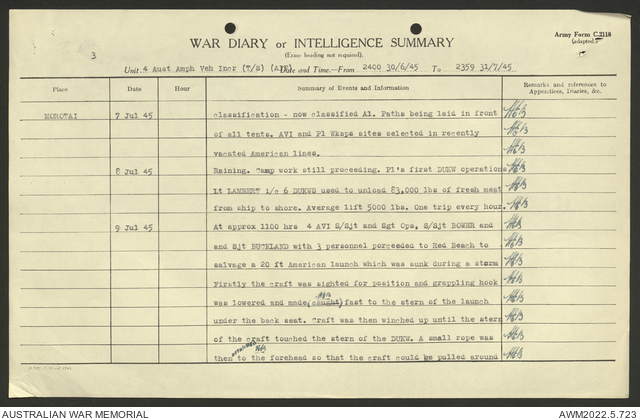 Army Form C.2118
(adapted.)
3
WAR DIARY or INTELLIGENCE SUMMARY
(Erase heading not required).
Unit. 4 Aust Amph Veh Incr (T/S) (AIF) Date and Time.—From 2400 30/6/45 To 2359 31/7/45
Place Date Hour Summary of Events and Information Remarks and references to Appendices, Diaries, &c.
MOROTAI 7 Jul 45 classification - now classified A1. Paths being laid in front
of all tents. AVI and Pl Wksps sites selected in recently
vacated American lines.
8 Jul 45 Raining. Camp work still proceeding. Pl's first DUKW operations
Lt LAMBERT i/c 6 DUKWS used to unload 83,000 lbs of fresh meat
from ship to shore. Average lift 5000 lbs. One trip every hour.
9 Jul 45 At approx 1100 hrs 4 AVI S/Sjt and Sgt Ops, S/Sjt BOWER and
and Sjt BUCKLAND with 3 personnel porceeded to Red Beach to
salvage a 20 ft American launch which was sunk during a storm
Firstly the craft was sighted for position and grappling hook
was lowered and made (caught) fast to the stern of the launch
under the back seat. Craft was then winched up until the stern
of the craft touched the stern of the DUKW. A small rope was
then attached to the forehead so that the craft could be pulled around
AUSTRALIAN WAR MEMORIAL
AWM2022.5.723